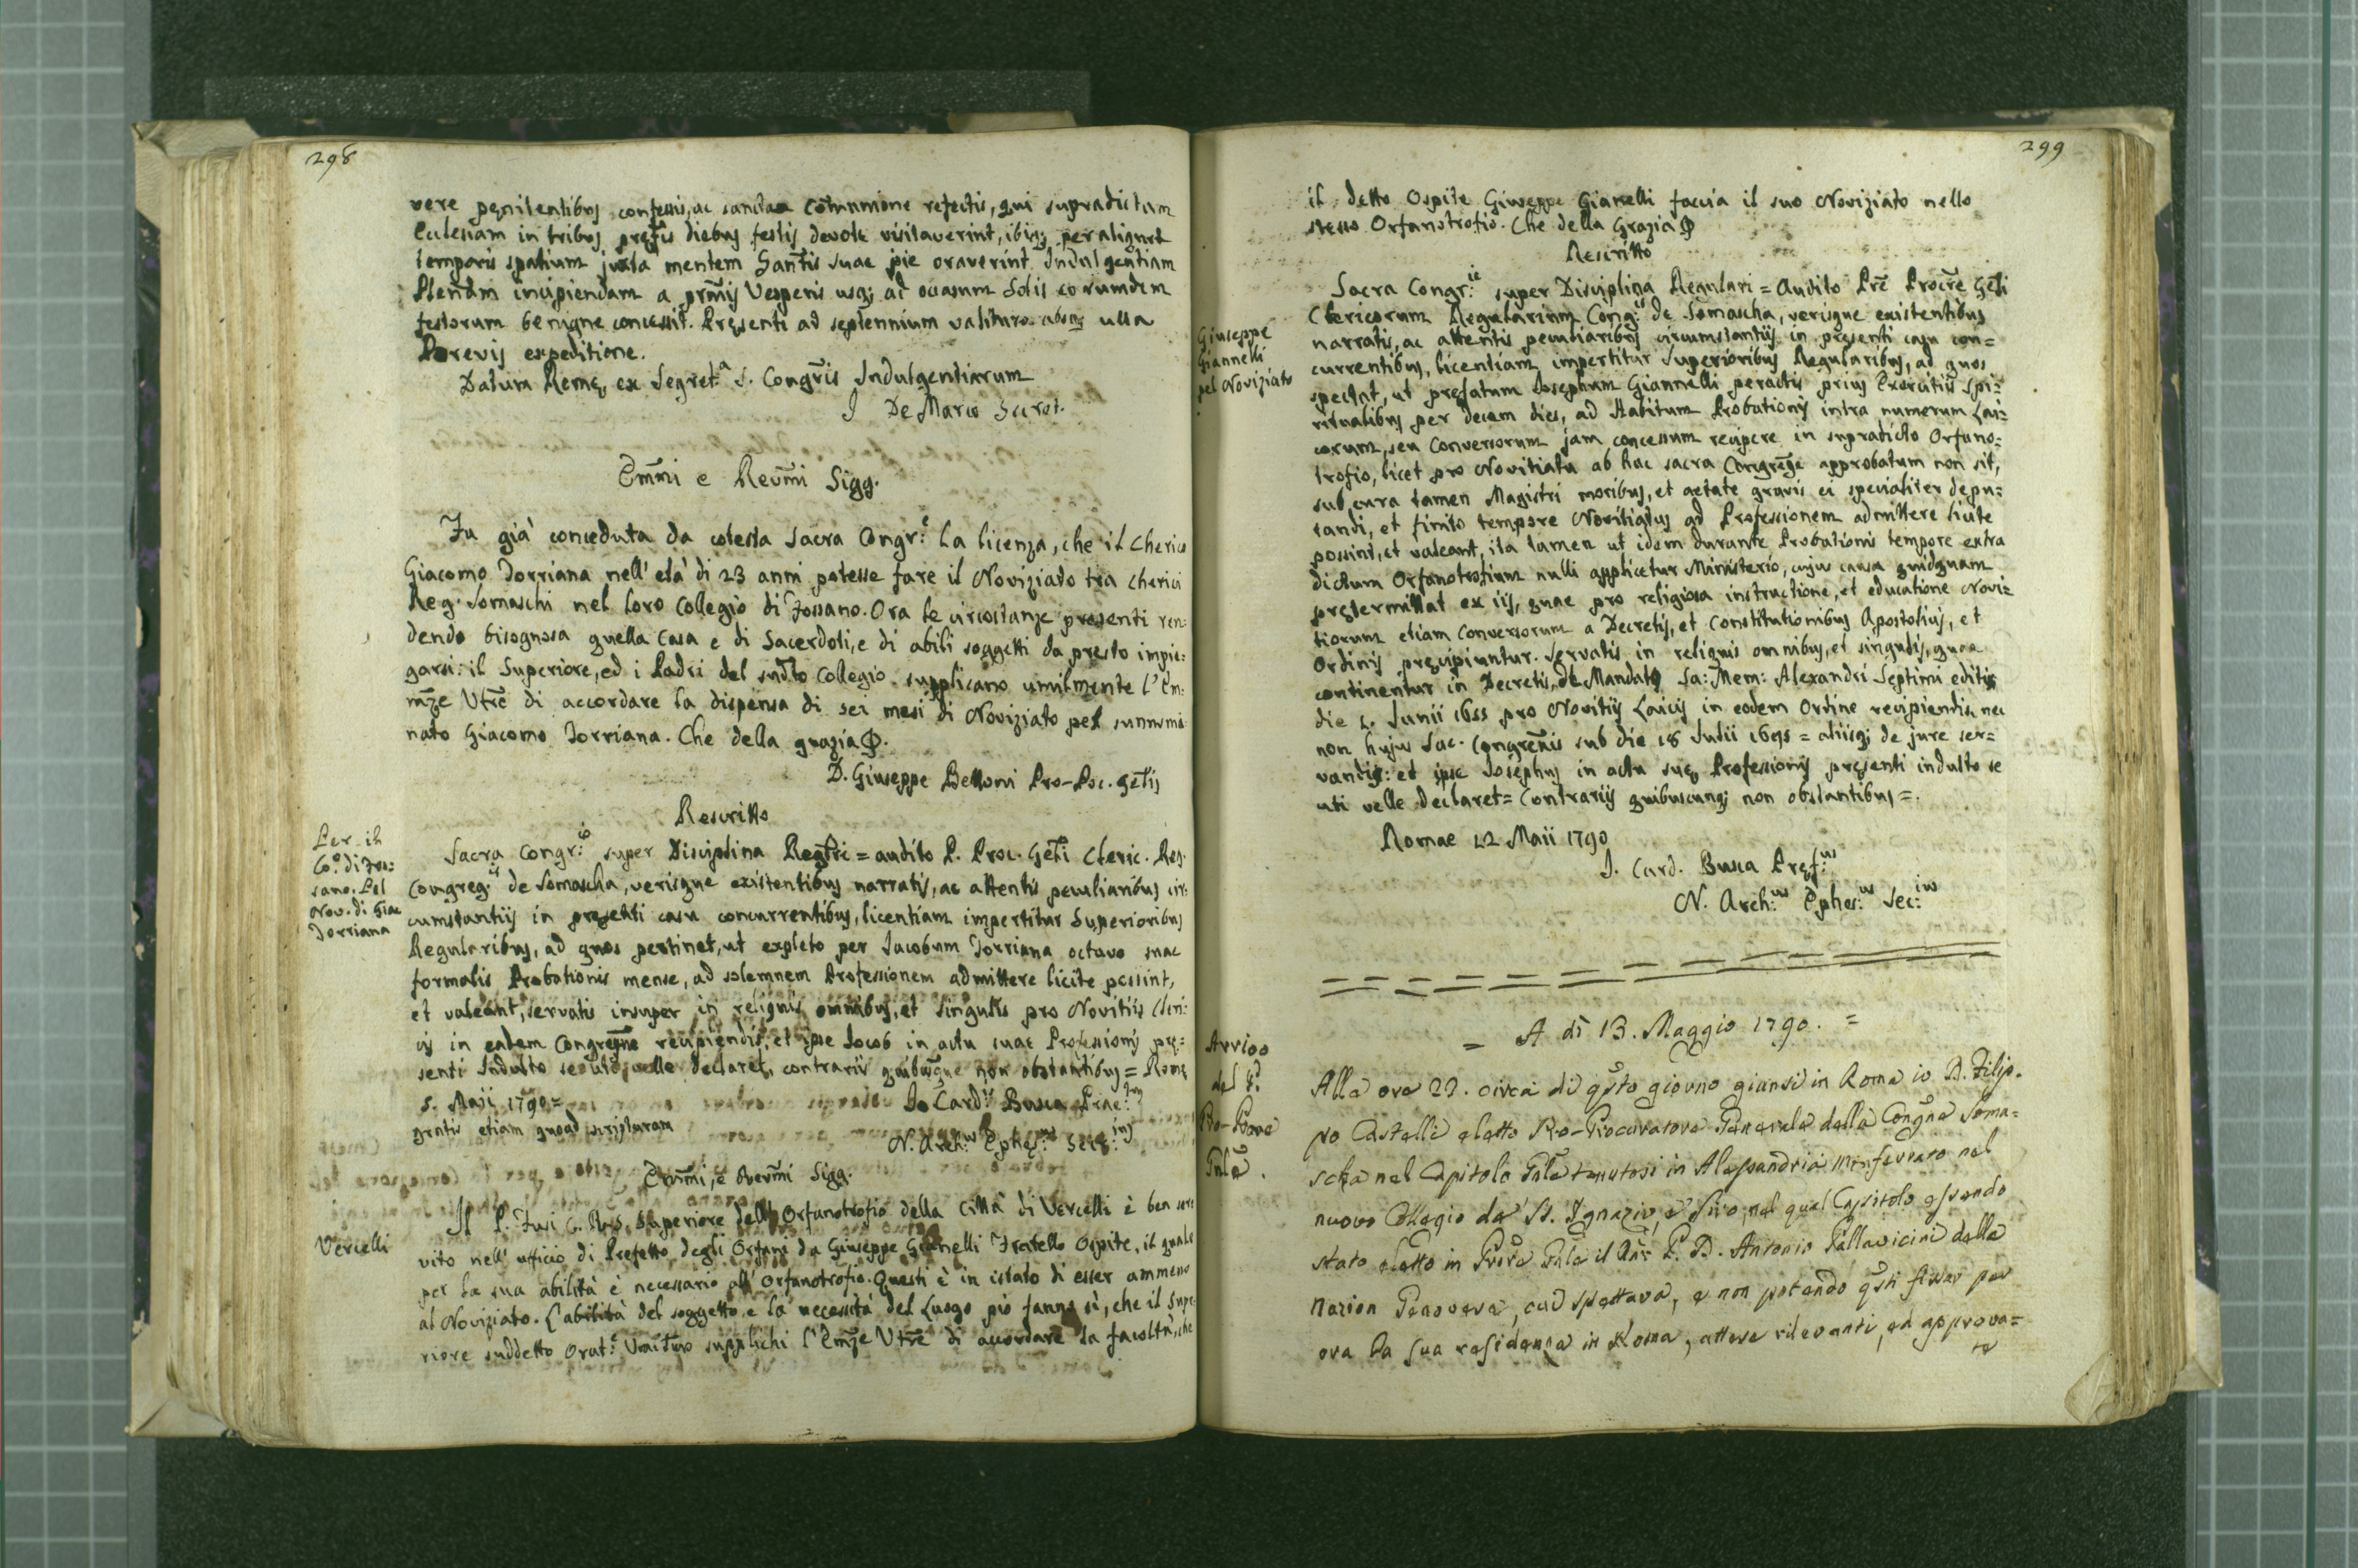 298
vere penitentibus confessis, ac sanctae Com̃unione refectis, qui supradictam
Eclesiam in tribus prefis diebus festis devote visitaverint, ibiq; per aliquot
temporis spatium juxta mentem Sanctis suae pie oraverint Indulgentiam
Plenam incipiendam a prm̃is Vesperis usq; ad occasum Solis eorumdem
festorum benigne concessit. Presenti ad septennium valituro absq; ulla
Brevis expeditione.
Datum Rome, ex Segret.ª S. Congr̃is Indulgentiarum
J De Marco Secret.
Em̃mi e Reum̃i Sigg.
Fu già conceduta da cotesta Sacra Congr.e la licenza, che il Cherico
Giacomo Torriana nell' età di 23 anni potesse fare il Noviziato tra Cherici
Reg. Somaschi nel loro Collegio di Fossano. Ora le circostanze presenti ren:
dendo bisognosa quella Casa e di Sacerdoti, e di abili soggetti da presto impie:
garsi: il Superiore, ed i Padri del sudto Collegio supplicano umilmente l'Em:
mze Vtre di accordare la dispensa di sei mesi di Noviziato pel sunnomi:
nato Giacomo Torriana. Che della grazia
D. Giuseppe Belloni Pro-Poc. Gelis
Rescritto
Per il
Co.o di Fos:
sano. Pel
Nov. di Giac
Torriana
Sacra Congr.io super Disciplina Reglri = audito P. Proc. Geli Cleric. Reg.
Congreg.is de Somascha, verisque existentibus narratis, ac attentis peculiaribus cir:
cumstantiis in presenti casu concurrentibus, licentiam impertitur Superioribus
Regularibus, ad quos pertinet, ut expleto per Jacobum Torriana octavo suae
formalis Probationis mense, ad solemnem Professionem admittere licite possint,
et valeant, servatis insuper in reliquis omnibus, et singulis pro Novitiis Cleri:
cis in eadem Congregne recipiendis, et ipse Jacob in actu suae Professionis pre:
senti Indulto se uti velle declaret, contrariis quibusque non obstantibus = Rome
5. Maii 1790 =
Jo Card. Busca Prae.
gratis etiam quoad scripturam
N. Arch.us Ephes.us Secr.ius
Em̃mi, e Reverm̃i Sigg.
Vercelli
Il P. Fusi C. R. S. Superiore dell' Orfanotrofio della Città di Vercelli è ben ser
vito nell' ufficio di Prefetto degli Orfani da Giuseppe Gianelli Fratello Ospite, il quale
per la sua abilità è necessario all' Orfanotrofio. Questi è in istato di esser ammeso
al Noviziato. L'abilità del soggetto, e la necessità del Luogo pio fanno sì, che il Supe
riore suddetto Orat.e supplichi l'Emze Vtre di accordare la facoltà, che
299
il detto Ospite Giuseppe Gianelli faccia il suo Noviziato nello
stesso Orfanotrofio. Che della Grazia
Rescritto
Giuseppe
Giannelli
pel Noviziato
Sacra Congr.ie super Disciplina Regulari = Audito Pr̃e Procr̃e Geli
Clericorum Regularium Cong.is de Somascha, verisque existentibus
narratis, ac attentis peculiaribus circumstantiis in presenti casu con=
currentibus, licentiam impertitur Superioribus Regularibus, ad quos
spectat, ut prefatum Josephum Giannelli peractis prius Exercitiis Spi=
ritualibus per decem dies, ad Habitum Probationis intra numerum Lai=
corum, seu Conversorum jam concessum recipere in supradicto Orfano=
trofio, licet pro Novitiatu ab hac sacra Congregne approbatum non sit,
sub cura tamen Magistri moribus, et aetate gravis ei specialiter depu=
tandi, et finito tempore Novitiatus ad Professionem admittere licite
possint, et valeant, ita tamen ut idem durante Probationis tempore extra
dictum Orfanotrofium nulli applicetur Ministerio, cujus causa quidquam
pretermittat ex iis, quae pro religiosa instructione, et educatione Novi=
tiorum etiam Conversorum a Decretis, et Constitutionibus Apostolicis, et
Ordinis precipiuntur. Servatis in reliquis omnibus, et singulis, quae
continentur in Decretis, de Mandato Sa: Mem: Alexandri Septimi editis
die 2. Junii 1655 pro Novitiis Laicis in eodem Ordine recipiendis, nec
non hujus Sac. Congrenis sub die 18 Julii 1695 = aliisq; de jure ser=
vandis: et ipse Josephus in actu sue Professionis presenti indulto se
uti velle declaret = Contrariis quibuscunq; non obstantibus =.
Romae 12 Maii 1790
J. Card. Busca Pref.us
N. Arch.us Ephes.us Sec.ius
= A dì 13. Maggio 1790. =
Arrivo
del P.
Pro-Proce
Gnle.
Alla ore 22. circa di qsto giorno giunsi in Roma io D. Filip.
po Castelli eletto Pro-Procuratore Generale della Congne Soma=
scha nel Capitolo Gnle tenutosi in Alessandria Monferrato nel
nuovo Collegio de' SS. Ignazio, e Siro, nel qual Capitolo essendo
stato eletto in Prore Gnle il P. D. Antonio Pallavicini della
Nazion Genovese, cui spettava, e non potendo qsti fissar per
ora la sua residenza in Roma, attese rilevanti, ed approva=
te